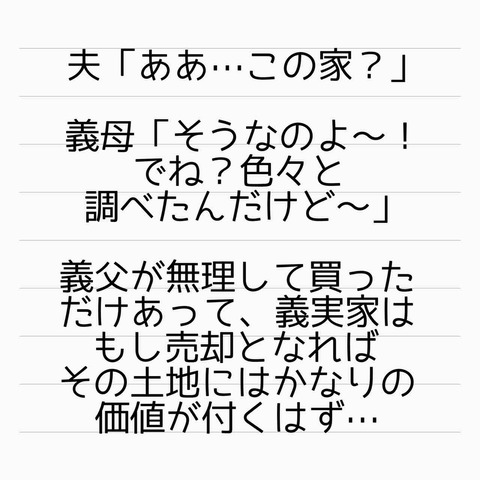 夫「ああ…この家？」
義母「そうなのよ〜！
でね？色々と
調べたんだけど〜」
義父が無理して買った
だけあって、義実家は
もし売却となれば
その土地にはかなりの
価値が付くはず…